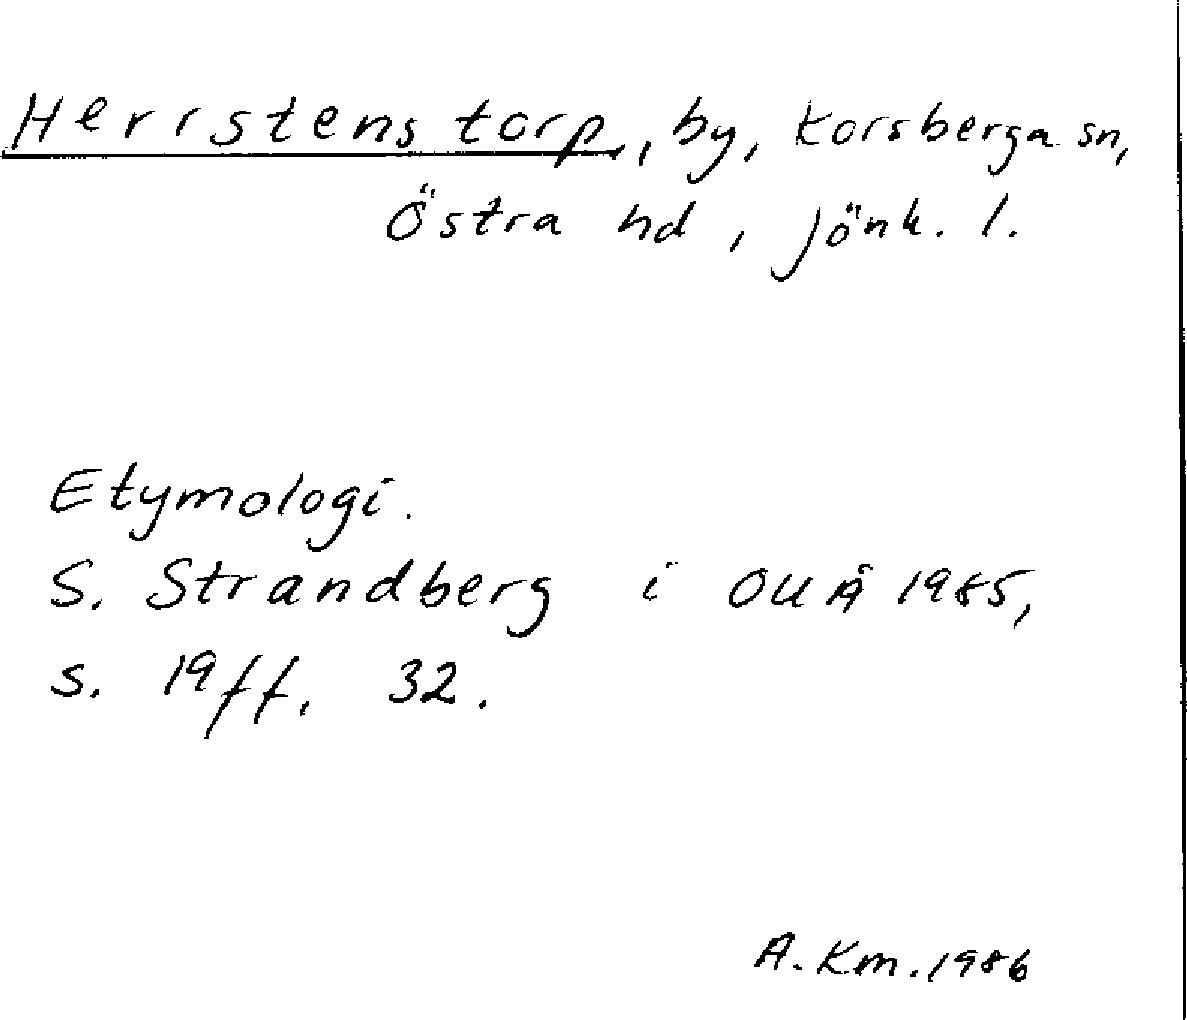 Herrstenstorp, by, Korsberga sn,
Östra hd, Jönk. l.
Etymologi.
S. Strandberg i OUÅ 1985,
s. 19ff, 32.
A. Km. 1986